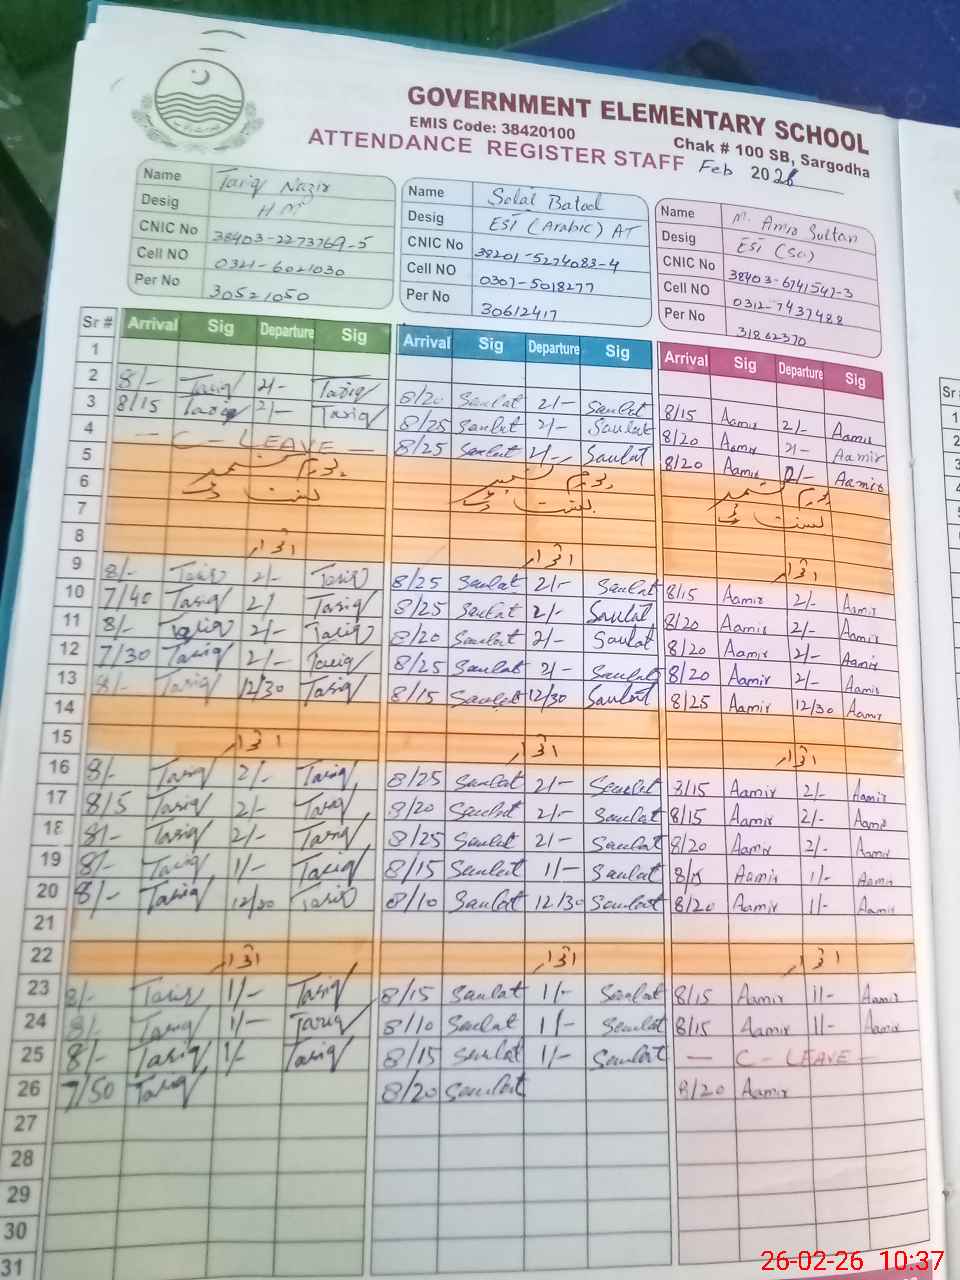 GOVERNMENT ELEMENTARY SCHOOL
EMIS Code: 38420100
Chak # 100 SB, Sargodha
ATTENDANCE REGISTER STAFF Feb 2026
Name Tariq Nazir
Desig HM
CNIC No 38403-2273769-5
Cell NO 0321-6021030
Per No 30521050
Name Batool
Desig EST (Arabic) AT
CNIC No 38201-5274083-4
Cell NO 0307-5018277
Per No 30612417
Name M. Amir Sultan
Desig EST (Sci)
CNIC No 38403-6741547-3
Cell NO 0312-7437488
Per No 31862370
Sr # Arrival Sig Departure Sig Arrival Sig Departure Sig Arrival Sig Departure Sig
1
2 8/- Tariq 2/- Tariq 8/20 Saulat 2/- Saulat 8/15 Aamir 2/- Aamir
3 8/15 Tariq 2/- Tariq 8/25 Saulat 2/- Saulat 8/20 Aamir 2/- Aamir
4 - C - LEAVE - 8/25 Saulat 2/- Saulat 8/20 Aamir 2/- Aamir
5 یوم کشمیر یوم کشمیر یوم کشمیر
6 بسنت بسنت بسنت
7
8 اتوار اتوار اتوار
9 8/- Tariq 2/- Tariq 8/25 Saulat 2/- Saulat 8/15 Aamir 2/- Aamir
10 7/40 Tariq 2/ Tariq 8/25 Saulat 2/- Saulat 8/20 Aamir 2/- Aamir
11 8/- Tariq 2/- Tariq 8/20 Saulat 2/- Saulat 8/20 Aamir 2/- Aamir
12 7/30 Tariq 2/- Tariq 8/25 Saulat 2/- Saulat 8/20 Aamir 2/- Aamir
13 8/- Tariq 12/30 Tariq 8/15 Saulat 12/30 Saulat 8/25 Aamir 12/30 Aamir
14
15 اتوار اتوار اتوار
16 8/- Tariq 2/- Tariq 8/25 Saulat 2/- Saulat 8/15 Aamir 2/- Aamir
17 8/5 Tariq 2/- Tariq 8/20 Saulat 2/- Saulat 8/15 Aamir 2/- Aamir
18 8/- Tariq 2/- Tariq 8/25 Saulat 2/- Saulat 8/20 Aamir 2/- Aamir
19 8/- Tariq 1/- Tariq 8/15 Saulat 1/- Saulat 8/15 Aamir 1/- Aamir
20 8/- Tariq 12/30 Tariq 8/10 Saulat 12/30 Saulat 8/20 Aamir 1/- Aamir
21
22 اتوار اتوار اتوار
23 8/- Tariq 1/- Tariq 8/15 Saulat 1/- Saulat 8/15 Aamir 1/- Aamir
24 8/- Tariq 1/- Tariq 8/10 Saulat 1/- Saulat 8/15 Aamir 1/- Aamir
25 8/- Tariq 1/- Tariq 8/15 Saulat 1/- Saulat - C - LEAVE -
26 7/50 Tariq 8/20 Saulat 8/20 Aamir
27
28
29
30
31
26-02-26 10:37